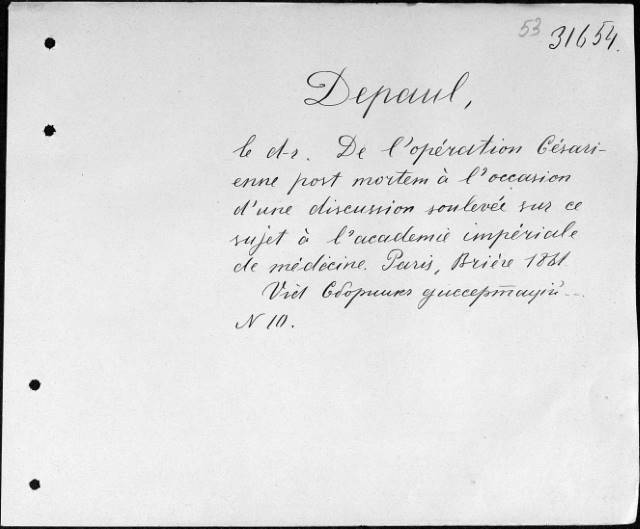 53 31654.
Depaul,
le d-r. De l'opération Césari-
enne post mortem à l'occasion
d'une discussion soulevée sur ce
sujet à l'academie impériale
de médecine. Paris, Brière 1861
Vid Сборникъ диссертацій...
N 10.